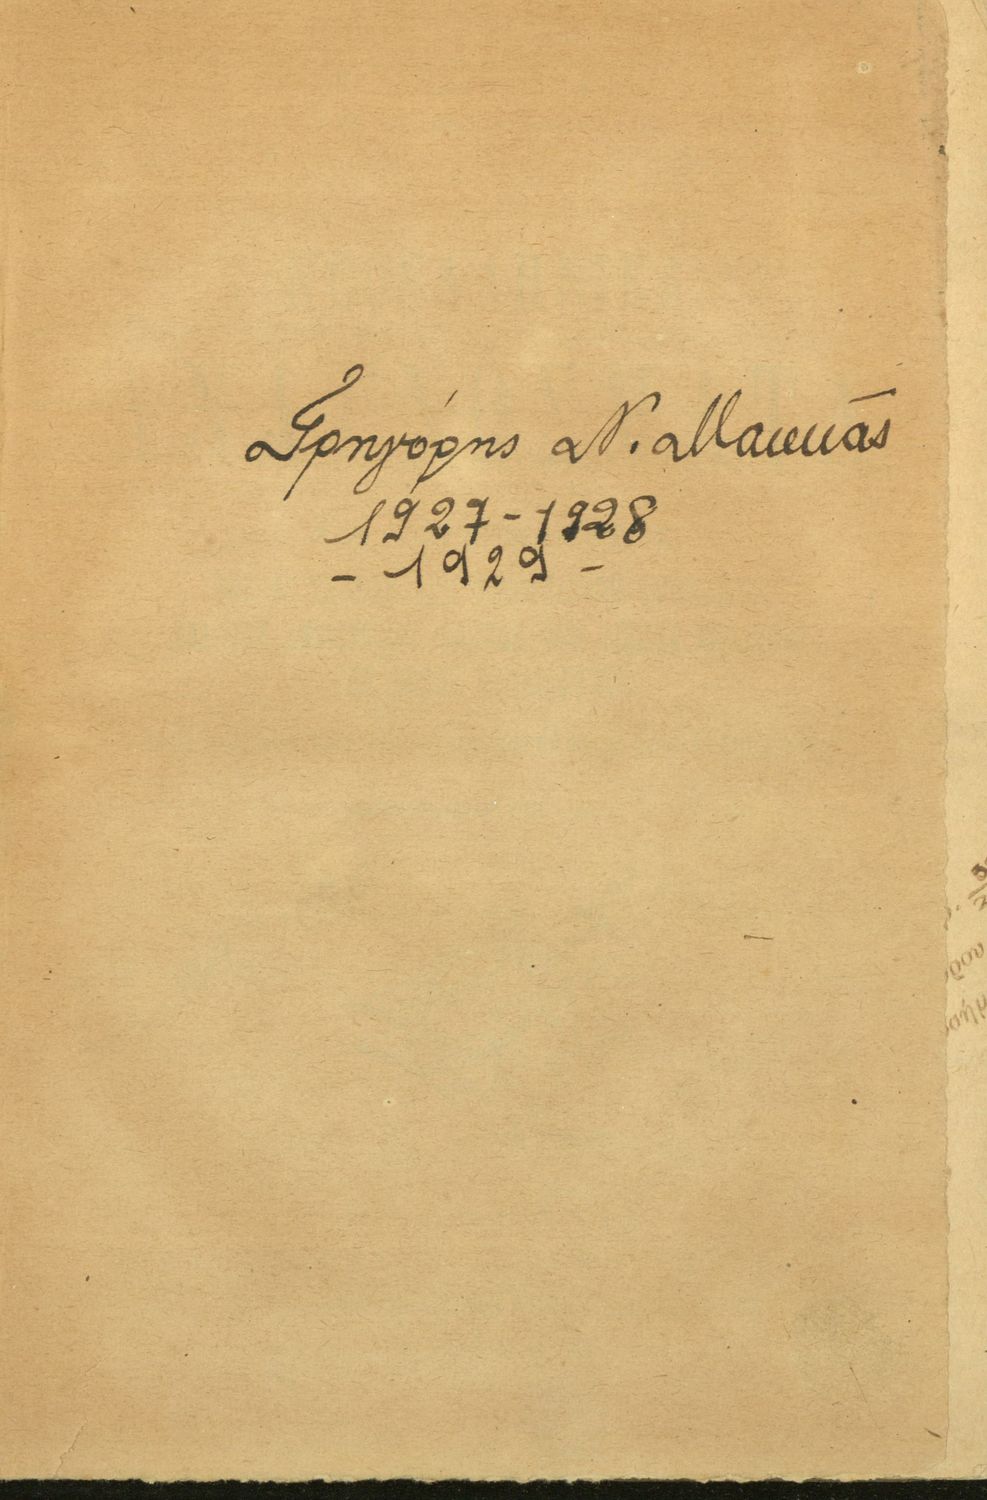 Γρηγόρης Ν. Μαμμᾶς
1927-1928
- 1929 -